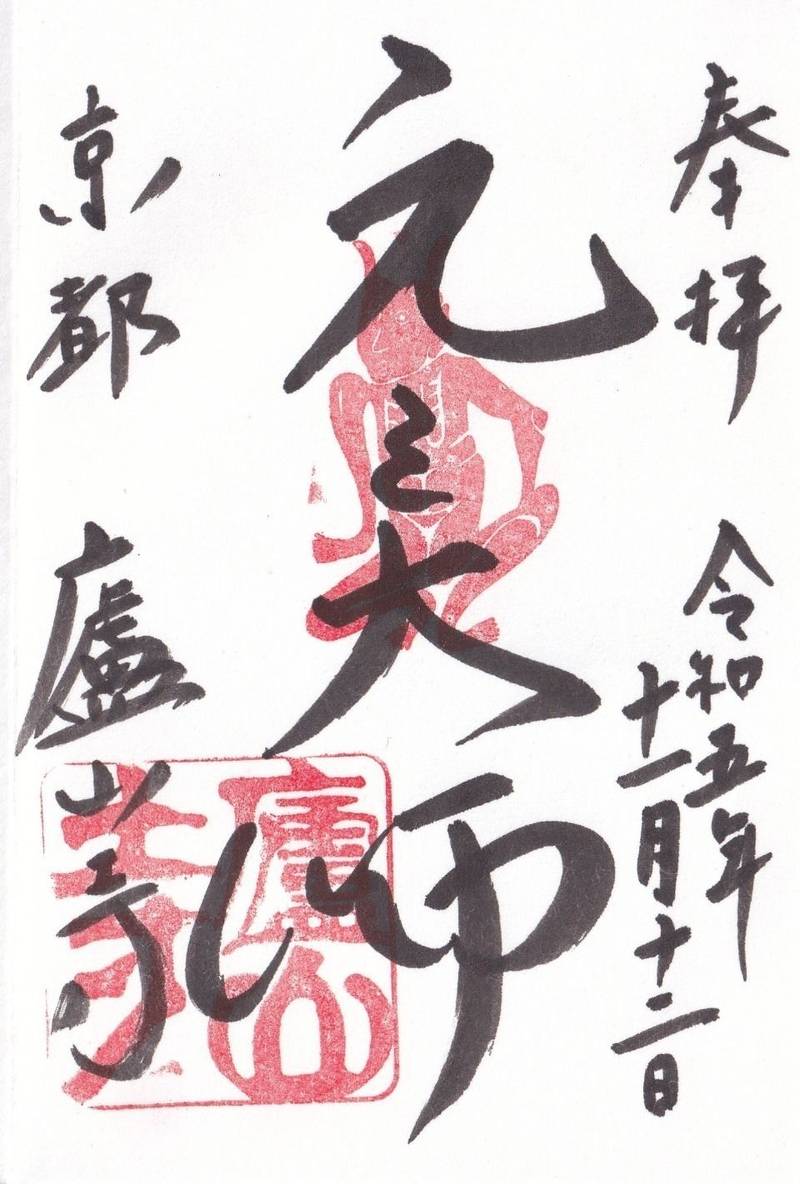 奉拝
令和五年
十一月十二日
元三大師
京都
廬山寺
廬山寺